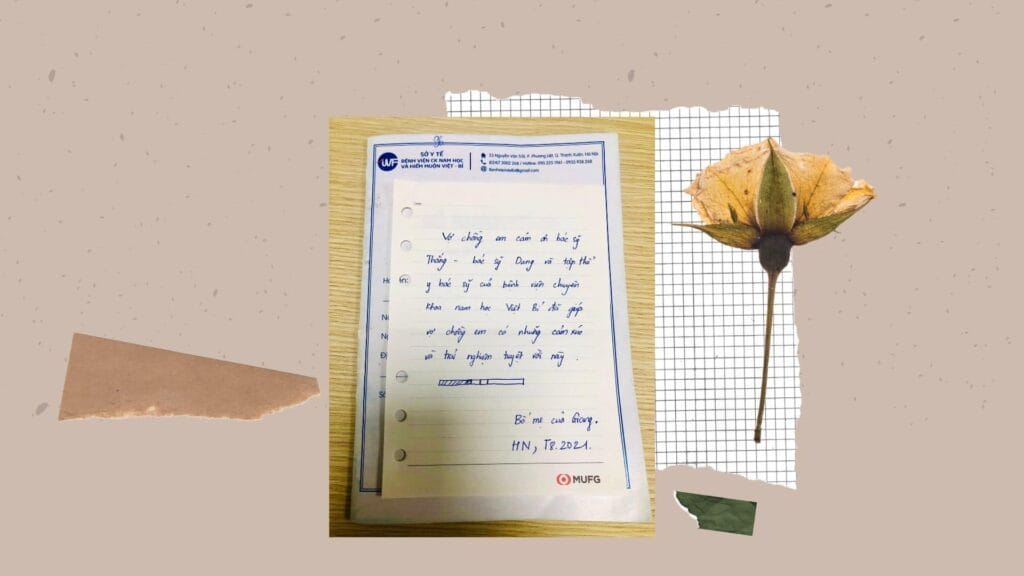 SỞ Y TẾ
BỆNH VIỆN CK NAM HỌC
VÀ HIẾM MUỘN VIỆT - BỈ
Vợ chồng em cảm ơn bác sỹ
Thắng - bác sỹ Dang và tập thể
y bác sỹ của bệnh viện chuyên
khoa nam học Việt Bỉ đã giúp
vợ chồng em có những cảm xúc
và trải nghiệm tuyệt vời này.
Bố mẹ của Giang.
HN, T8.2021.
MUFG